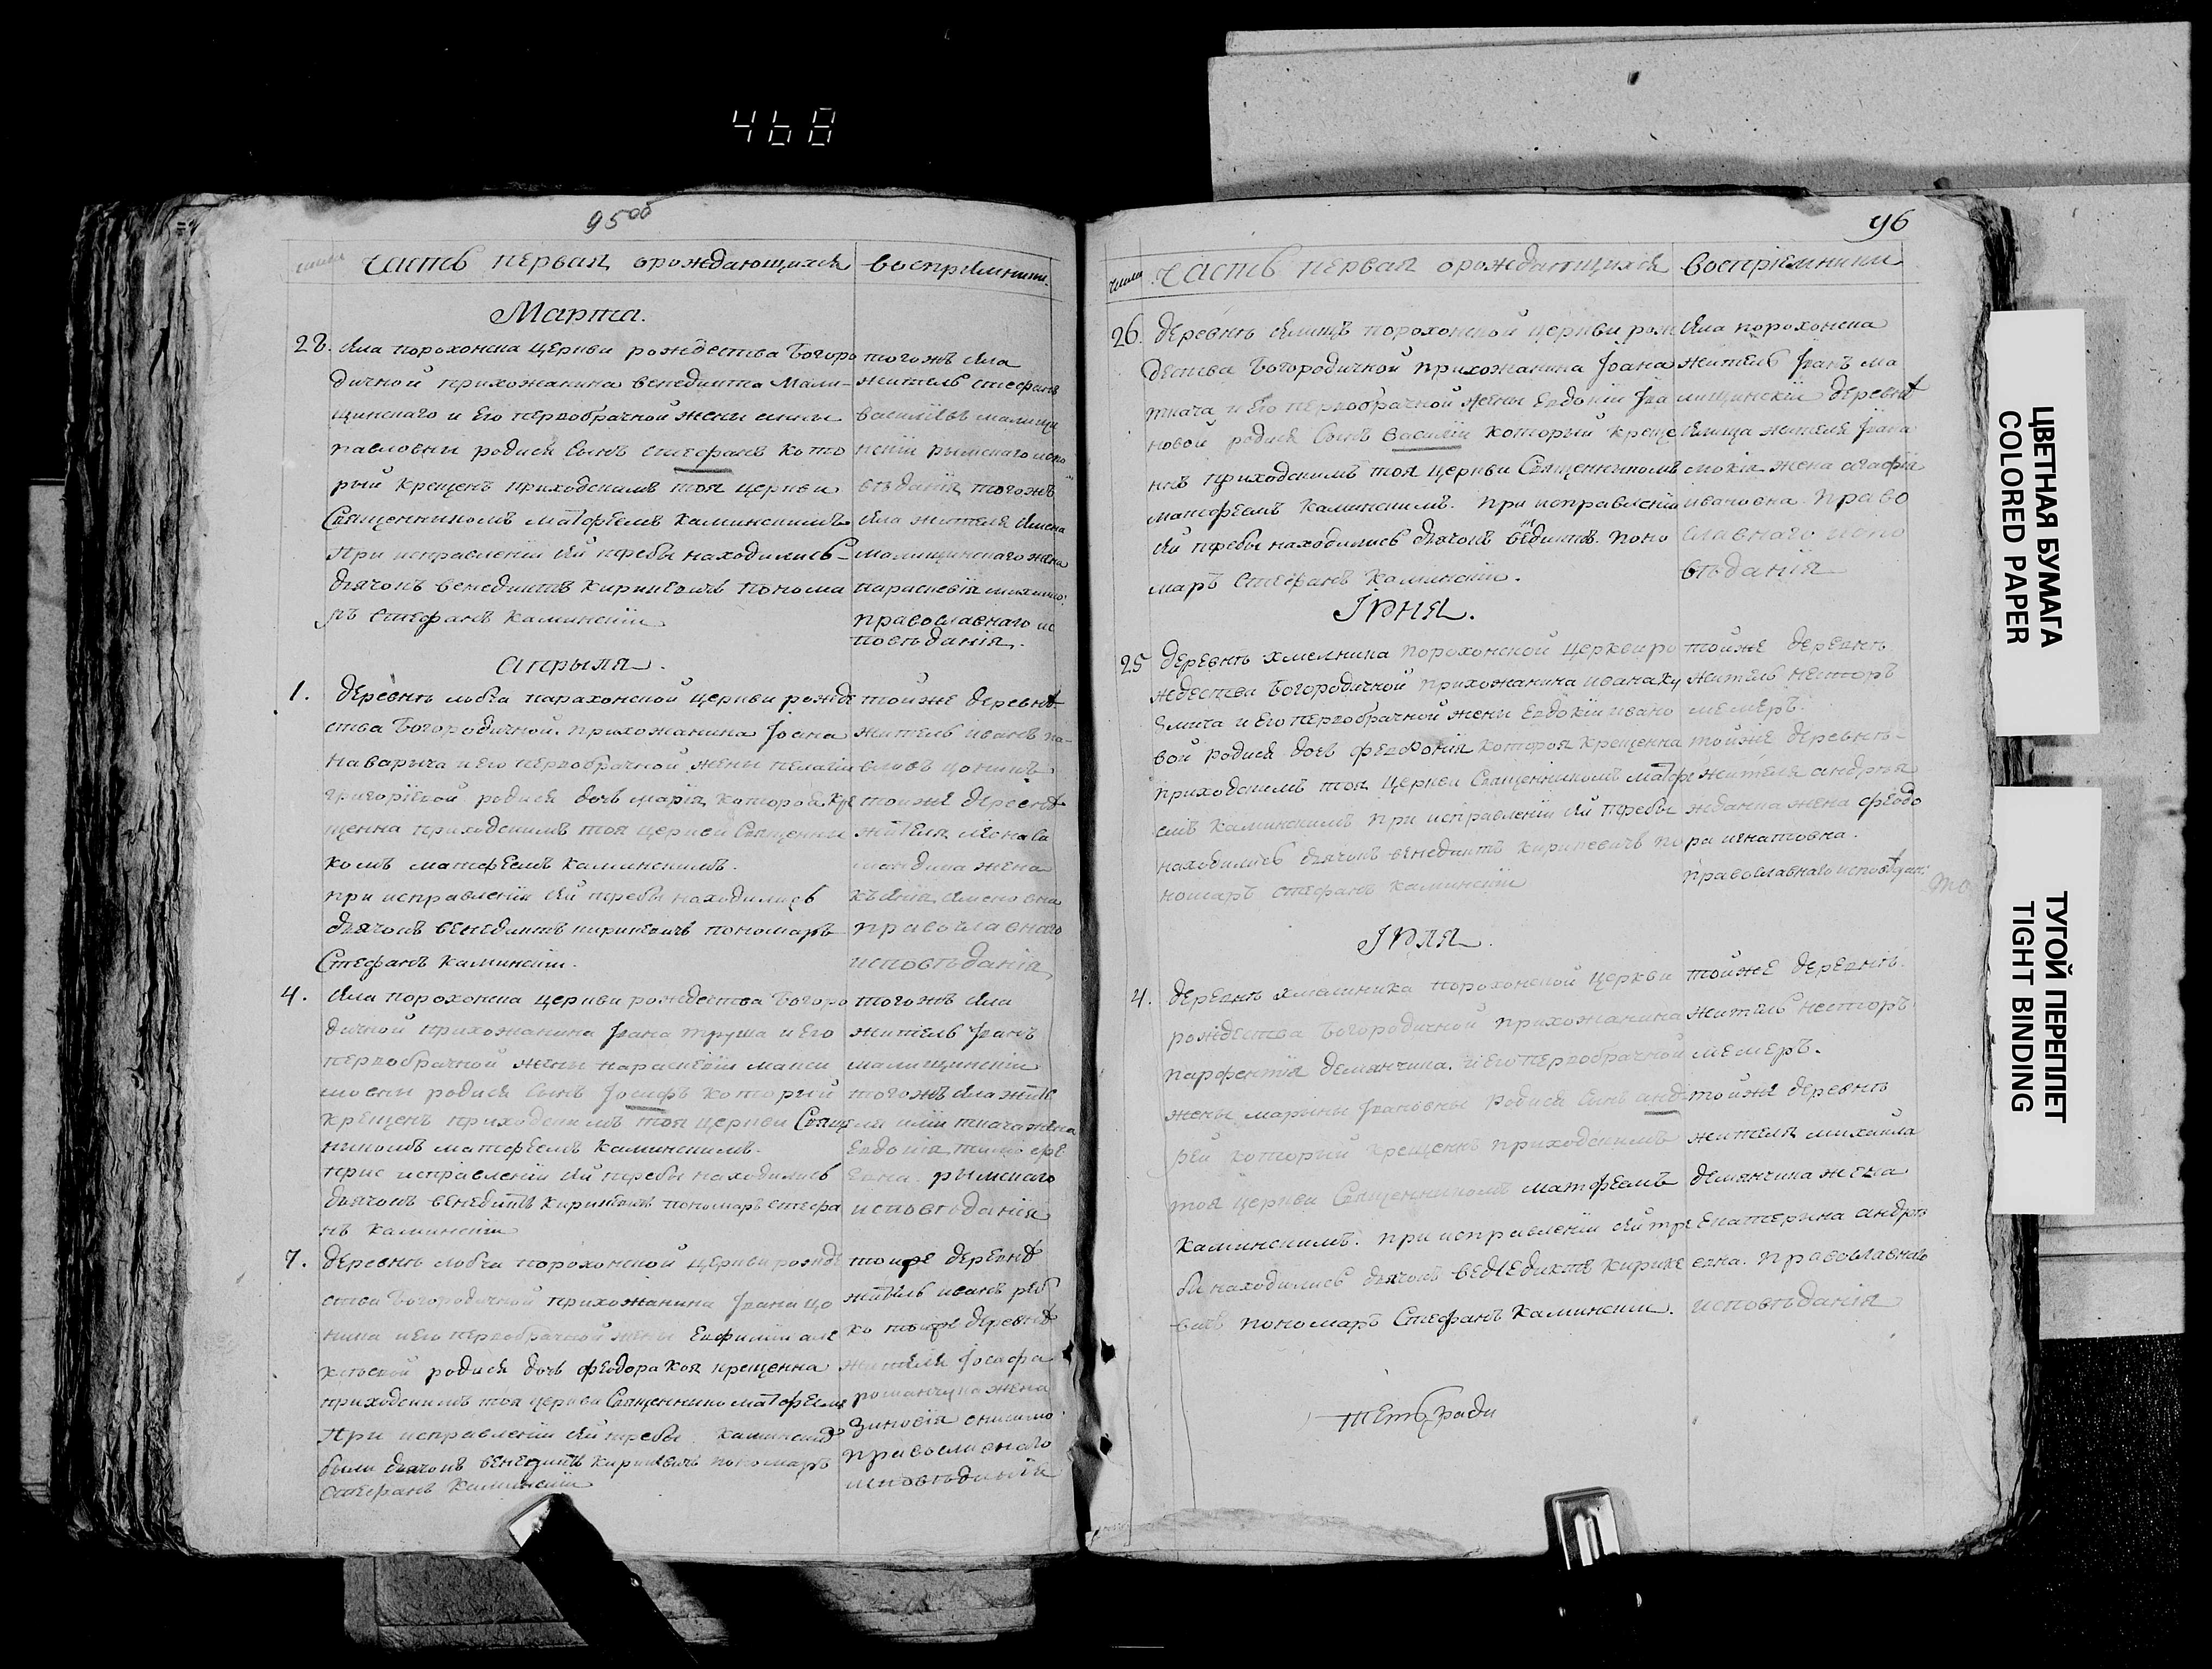 468
95об
числа
часть первая орождающихся
восприемники.
Марта.
28. села порохонска церкви рождества богоро
дичной прихожанина венедикта мали-
щинскаго и его первобрачной жены анны
павловны родися сынъ стефанъ кото
рый крещенъ приходскимъ тоя церкви
Священникомъ матфеемъ каминскимъ
При исправленіи сей требы находились
дьячокъ венедиктъ кирикевичъ понома
ръ стефанъ каминскій
тогожъ села
житель стефанъ
василіевъ малищи
нскій рымскаго испо
вѣданія тогожъ
села жителя
малищинскаго жена
параскевія
православнаго ис
повѣданія.
Апрыля.
1. деревнѣ любча парахонской церкви рожде
ства богородичной прихожанина Іоана
наварыча и его первобрачной жены пелагіи
григоріевой родися дочь марія которая кре
щенна приходскимъ тоя церкви Священни
комъ матфеемъ каминскимъ.
при исправленіи сей требы находились
дьячокъ венедиктъ кирикевичъ пономаръ
Стефанъ каминскій.
тойже деревнѣ
житель иванъ
тойже деревнѣ
жителя
жена
православнаго
исповѣданія
4. села порохонска церкви рождества богоро
дичной прихожанина Івана труша и его
первобрачной жены параскевіи макси
мовны родися сынъ Іосифъ который
крещенъ приходскимъ тоя церкви Свяще
нникомъ матфеемъ каминскимъ.
при исправленіи сей требы находились
дьячокъ венедиктъ кирикевичъ пономаръ стефа
нъ каминскій
тогожъ села
житель Іванъ
малищинскій
тогожъ села жите
ткача жена
Евдокія тимофе
евна рымскаго
исповѣданія
7. деревнѣ любча порохонской церкви рожде
ства богородичной прихожанина Івана цо
ника и его первобрачной жены Евфиміи але
ксѣевой родися дочь феодора коя крещенна
приходскимъ тоя церкви Священнико матфеемъ
При исправленіи сей требы каминскимъ
были дьячокъ венедиктъ кирикевичъ пономаръ
стефанъ каминскій
тойже деревнѣ
житель иванъ
ко тойже деревнѣ
жителя Іосафа
романчука жена
Зиновія
православнаго
исповѣданія
96
числа
часть первая орождающихся
Воспріемники
26. деревнѣ селищъ порохонской церкви рож
дества богородичной прихожанина Іоана
ткача и его первобрачной жены Евдокіи Іва
новой родися сынъ василій который креще
нъ приходскимъ тоя церкви Священникомъ
матфеемъ каминскимъ. при исправленіи
сей требы находились дьячокъ поно
маръ стефанъ каминскій.
села порохонска
житель Іванъ ма
лищинскій деревнѣ
селища жителя Івана
жена агафія
ивановна право
славнаго испо
вѣданія
Іюня.
25 деревнѣ хмелника порохонской церкви ро
ждества богородичной прихожанина ивана ку
змича и его первобрачной жены Евдокіи ивано
вой родися дочь феврония которая крещенна
приходскимъ тоя церкви Священникомъ матфе
емъ каминскимъ при исправленіи сей требы
находились дьячокъ венедиктъ кирикевичъ по
номаръ стефанъ каминскій
тойже деревнѣ
житель несторъ
мемеръ.
тойже деревнѣ
жителя андрея
жданка жена феодо
ра игнатовна.
православнаго исповѣдан:
Іюля.
4. деревнѣ хмелника порохонской церкви
рождества богородичной прихожанина
парфентія демянчика и его первобрачной
жены марыны Івановны родися сынъ анд
рей который крещенъ приходскимъ
тоя церкви Священникомъ матфеемъ
каминскимъ. при исправленіи сей тре
бы находились дьячокъ венедиктъ кирике
вичъ пономаръ Стефанъ каминскій.
тойже деревнѣ
житель несторъ
мемеръ.
тойже деревнѣ
жителя михаила
демянчика жена
Екатерина андрѣ
евна. православнаго
исповѣданія
ЦВЕТНАЯ БУМАГА
COLORED PAPER
ТУГОЙ ПЕРЕПЛЕТ
TIGHT BINDING